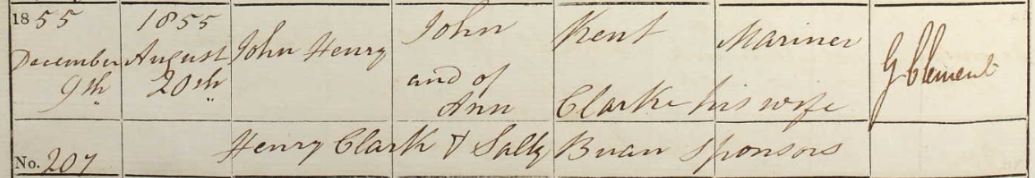 1855 1855 John Kent Mariner
December August John Henry
9th 20th and of G Clement
Ann Clarke his wife
No. 207 Henry Clark & Sally Buan Sponsors